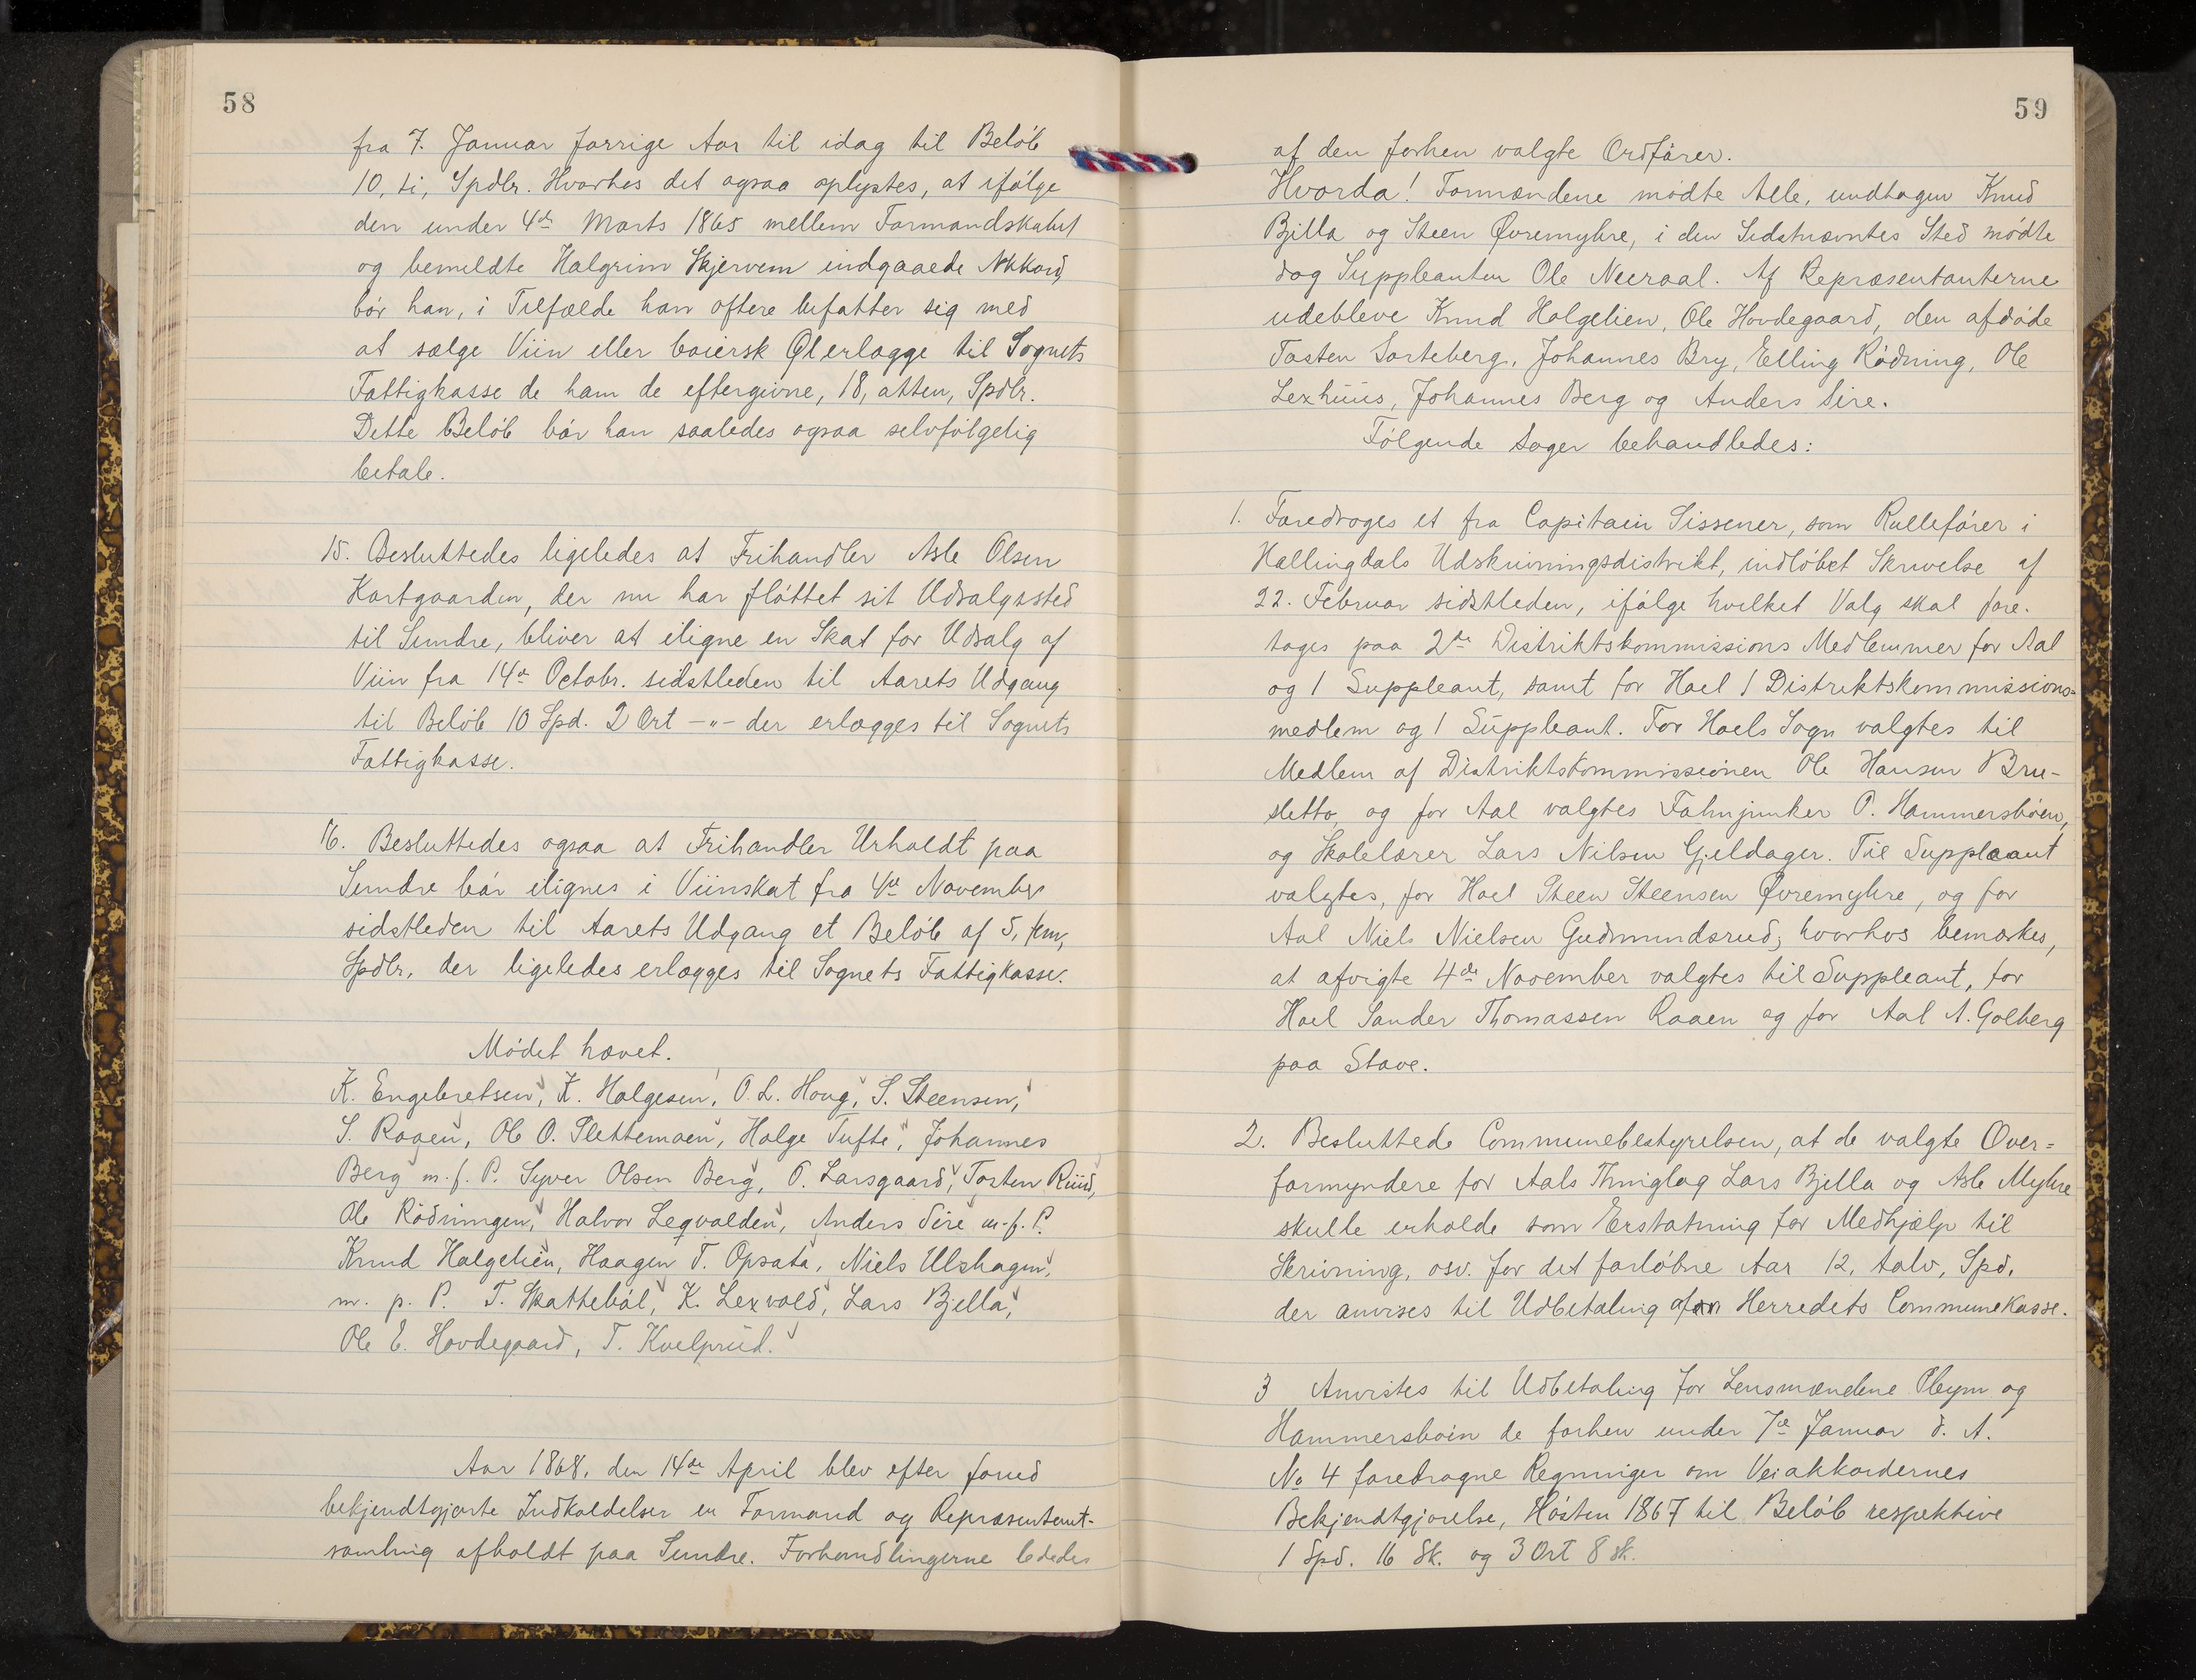 58
fra 7. Januar forrige Aar til idag til Beløb
10, ti, Spdlr. Hvorhos det ogsaa oplystes, at ifølge
den under 4de Marts 1865 mellem Formandskabet
og bemeldte Halgrim Skjervem indgaaede Akkord,
bør han, i Tilfælde han oftere befatter sig med
at sælge Viin eller baiersk Øl erlægge til Sognets
Fattigkasse de ham de eftergivne, 18, atten, Spdlr.
Dette Beløb bør han saaledes ogsaa selvfølgelig
betale.
15. Besluttedes ligeledes at Frihandler Asle Olsen
Kortgaarden, der nu har fløttet sit Udsalgssted
til Sundre, bliver at iligne en Skat for Udsalg af
Viin fra 14de Octobr. sidstleden til Aarets Udgang
til Beløb 10 Spd. 2 Ort -"- der erlægges til Sognets
Fattigkasse.
16. Besluttedes ogsaa at Frihandler Urholdt paa
Sundre bør ilignes i Viinskat fra 4de November
sidstleden til Aarets Udgang et Beløb af 5, fem,
Spdlr, der ligeledes erlægges til Sognets Fattigkasse.
Mødet hævet.
K. Engebretsen, K. Halgesen, O. L. Houg, S. Steensen,
S. Raaen, Ole O. Slettemoen, Halge Tufte, Johannes
Berg m. f. P. Syver Olsen Berg, O. Larsgaard, Torsten Ruud,
Ole Rødningen, Halvor Legvolden, Anders Sire m. f. P.
Knud Halgelien, Haagen T. Opsata, Niels Ulshagen,
m. p. P. T. Skattebøl, K. Lexvold, Lars Bjella,
Ole E. Hovdegaard, T. Kvelprud.
Aar 1868, den 14de April blev efter forud
bekjendtgjorte Indkaldelser en Formand og Repræsentant-
samling afholdt paa Sundre. Forhandlingerne lededes
59
af den forhen valgte Ordfører.
Hvorda! Formændene mødte Alle, undtagen Knud
Bjella og Steen Øvremyhre, i den Sidstnævntes Sted mødte
dog Suppleanten Ole Neeraal. Af Repræsentanterne
udebleve Knud Halgelien, Ole Hovdegaard, den afdøde
Tosten Sorteberg, Johannes Bry, Elling Rødning, Ole
Lexhuus, Johannes Berg og Anders Sire.
Følgende Sager behandledes:
1. Foredroges et fra Capitain Sissener, som Rullefører i
Hallingdals Udskrivningsdistrikt, indløbet Skrivelse af
22. Februar sidstleden, ifølge hvilket Valg skal fore-
tages paa 2de Distriktskommissions Medlemmer for Aal
og 1 Suppleant, samt for Hoel 1 Distriktskommissions=
medlem og 1 Suppleant. For Hoels Sogn valgtes til
Medlem af Distriktskommissionen Ole Hansen Bru-
sletto, og for Aal valgtes Fahnjunker O. Hammersbøen,
og Skolelærer Lars Nilsen Gjeldager. Til Suppleant
valgtes, for Hoel Steen Steensen Øvremyhre, og for
Aal Niels Nielsen Gudmundsrud; hvorhos bemærkes,
at afvigte 4de November valgtes til Suppleant, for
Hoel Sander Thomassen Raaen og for Aal A. Golberg
paa Stave.
2. Besluttede Communebestyrelsen, at de valgte Over=
formyndere for Aals Thinglag Lars Bjella og Asle Myhre
skulle erholde som Erstatning for Medhjælp til
Skrivning, osv. for det forløbne Aar 12, tolv, Spd,
der anvises til Udbetaling af Herredets Communekasse.
3 Anvistes til Udbetaling for Lensmændene Pleym og
Hammersboin de forhen under 7de Januar d. A.
No 4 foredragne Regninger om Veiakkordernes
Bekjendtgjørelse, Høsten 1867 til Beløb respektive
1 Spd. 16 Sk. og 3 Ort 8 Sk.